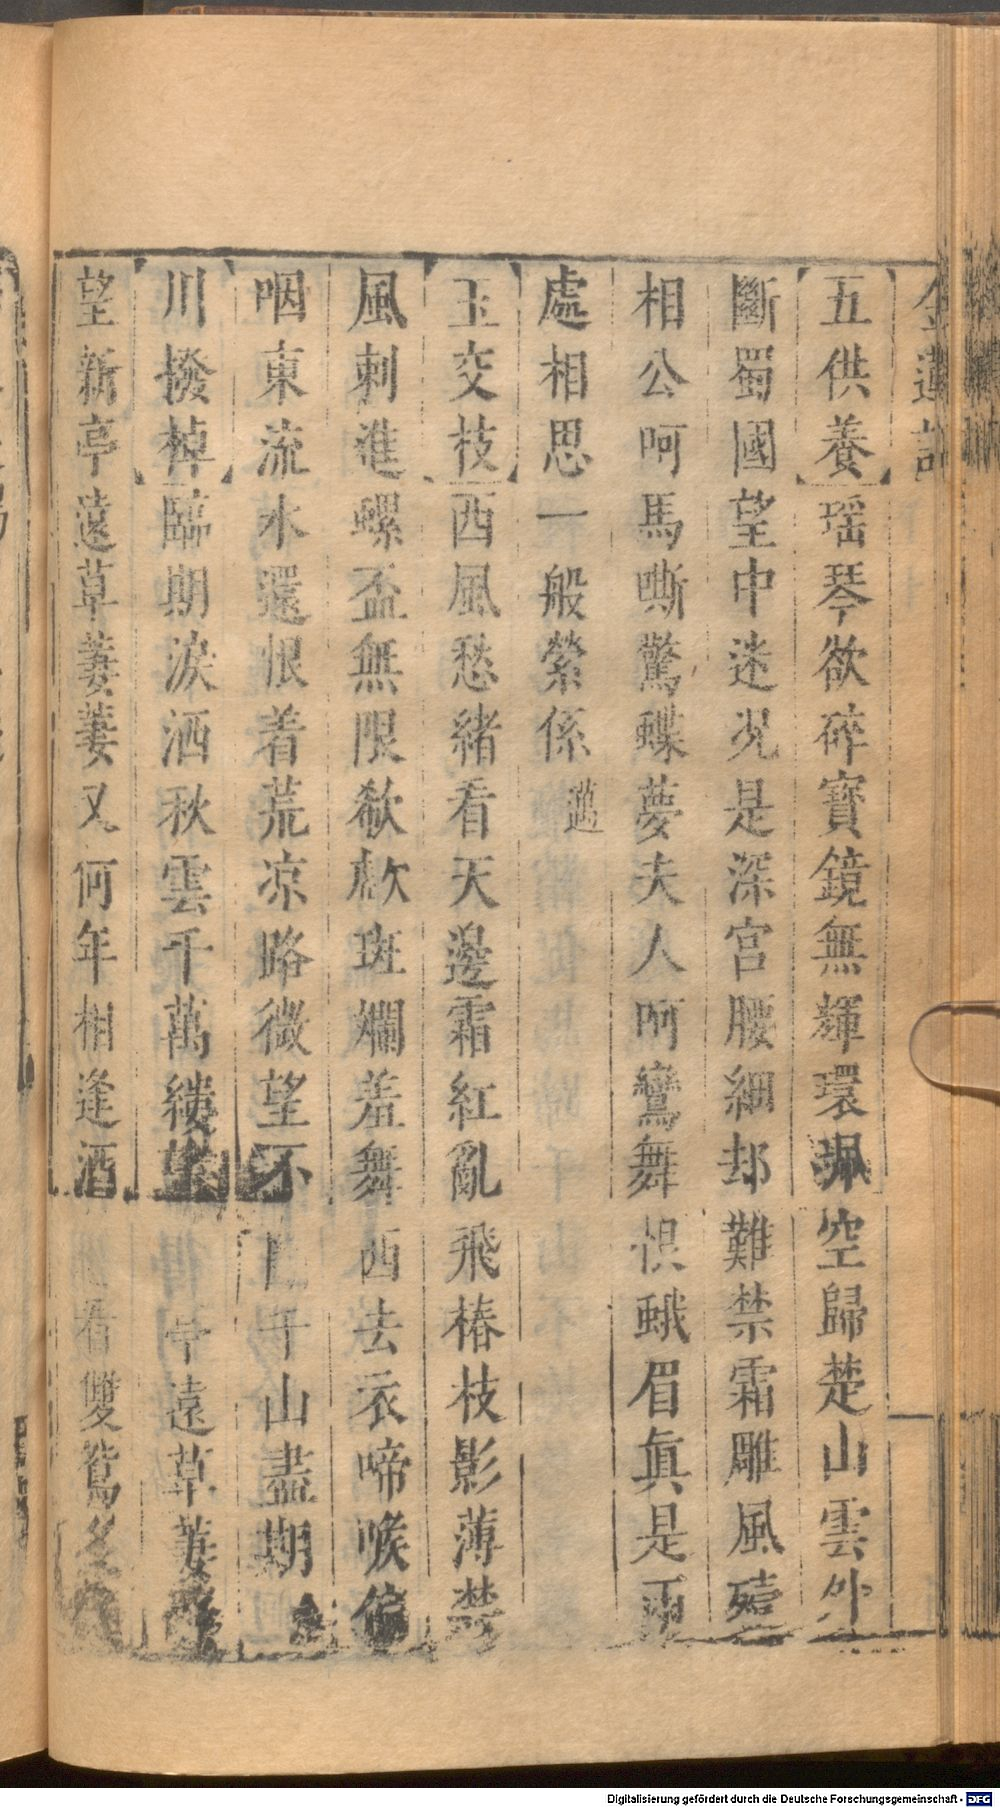 金蓮記
五供養瑶琴欲碎寶鏡無輝環珮空歸楚山雲外
斷蜀國望中迷况是深宫腰細却難禁霜雕風
相公呵馬嘶驚蝶夢夫人呵鸞舞惧蛾眉眞是兩
處相思一般縈係
玉交枝西風愁緒看天邊霜紅亂飛椿枝影薄
風刺進螺盃無限欷歔斑斕羞舞西去衣啼喉偏
咽東流水還恨着荒凉路微望不千山盡期
川撥棹臨期淚洒秋雲千萬縷遠草萋
望新亭遠草萋萋又何年相逢酒看雙鴛
Digitalisierung gefördert durch die Deutsche Forschungsgemeinschaft - DFG